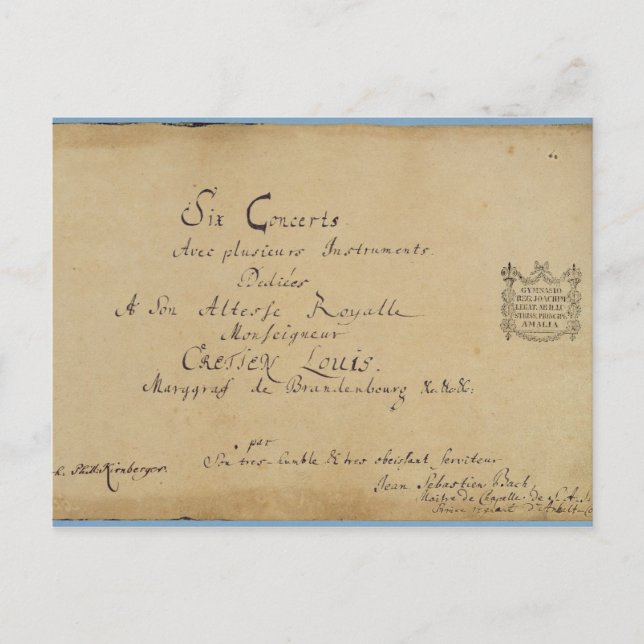 Six Concerts
Avec plusieurs Instruments.
Dediées
A Son Altesse Royalle
Monseigneur
CRETIEN Louis.
Marggraf de Brandenbourg &c.&c.&c:
par
Son tres-humble & tres obeissant Serviteur
Jean Sebastien Bach,
Maitre de Chapelle de S. A. S.
Prince regnant d'Anhalt-Co
Phil: Kirnberger.
GYMNASIO
REG. JOACHIM
LEGAT. AB ILLU
STRISS. PRINCIPE
AMALIA